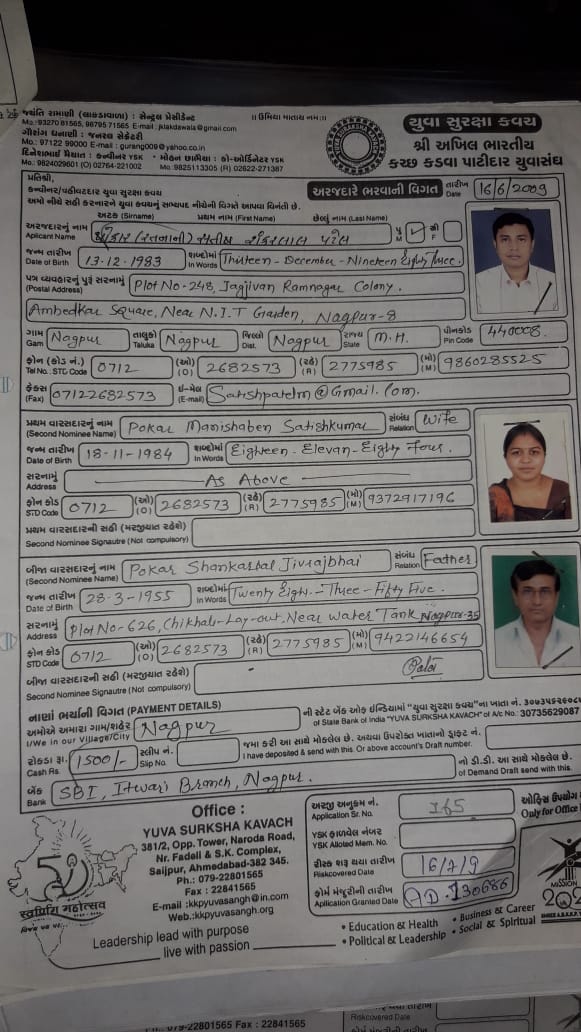 જયંતિ રામાણી (લાકડાવાળા) : સેન્ટ્રલ પ્રેસીડેન્ટ
Mo.:93270 81565, 98795 71565 E-mail : jklakdawala@gmail.com
ગૌરાંગ ધનાણી : જનરલ સેક્રેટરી
Mo.: 97122 99000 E-mail : gurang009@yahoo.co.in
દિનેશભાઈ મૈયાત : કન્વીનર YSK • મોહન છાભૈયા : કો-ઓર્ડિનેટર YSK
Mo.: 9824029601 (O) 02764-221002 Mo.: 9825113305 (R) 02622-271387
॥ ઉમિયા માતાય નમઃ ॥
યુવા સુરક્ષા કવચ
શ્રી અખિલ ભારતીય
કચ્છ કડવા પાટીદાર યુવાસંઘ
પ્રતિશ્રી,
કન્વીનર/વહીવટદાર યુવા સુરક્ષા કવચ
અરજદારે ભરવાની વિગત તારીખ Date 16/6/2009
અમો નીચે સહી કરનારને યુવા કવચનું સભ્યપદ નીચેની વિગતે આપવા વિનંતી છે.
અટક (Sirname) પ્રથમ નામ (First Name) છેલ્લું નામ (Last Name)
અરજદારનું નામ
Aplicant Name પોકાર (રતનાની) સતીષ શંકરલાલ પટેલ પુ M સ્ત્રી F
જન્મ તારીખ
Date of Birth 13-12-1983 શબ્દોમાં In Words Thirteen - December - Nineteen Eighty Three.
પત્ર વ્યવહારનું પુરૂં સરનામું
(Postal Address) Plot No-248, Jagjivan Ramnagar Colony.
Ambedkar Square, Near N.I.T Garden, Nagpur-8
ગામ Gam Nagpur તાલુકો Taluka Nagpur જિલ્લો Dist. Nagpur રાજ્ય State M.H. પીનકોડ Pin Code 440008.
ફોન (કોડ નં.)
Tel No. STC Code 0712 (ઓ) (O) 2682573 (રહે) (R) 2775985 (મો) (M) 9860285525
ફેક્સ
(Fax) 07122682573 ઈ-મેલ (E-mail) Satishpatelm@Gmail.Com.
પ્રથમ વારસદારનું નામ
(Second Nominee Name) Pokar Manishaben Satishkumar સંબંધ Relation Wife
જન્મ તારીખ
Date of Birth 18-11-1984 શબ્દોમાં In Words Eighteen - Elevan - Eighty Four.
સરનામું
Address As Above
ફોન કોડ
STD Code 0712 (ઓ) (O) 2682573 (રહે) (R) 2775985 (મો) (M) 9372917196
પ્રથમ વારસદારની સહી (મરજીયાત રહેશે)
Second Nominee Signautre (Not compulsory)
બીજા વારસદારનું નામ
(Second Nominee Name) Pokar Shankarlal Jivrajbhai સંબંધ Relation Father
જન્મ તારીખ
Date of Birth 28-3-1955 શબ્દોમાં In Words Twenty Eight - Three - Fifty Five.
સરનામું
Address Plot No-626, Chikhali-Lay-out, Near Water Tank, Nagpur-35
ફોન કોડ
STD Code 0712 (ઓ) (O) 2682573 (રહે) (R) 2775985 (મો) (M) 9422146654
બીજા વારસદારની સહી (મરજીયાત રહેશે)
Second Nominee Signautre (Not compulsory)
નાણાં ભર્યાની વિગત (PAYMENT DETAILS)
ની સ્ટેટ બેંક ઓફ ઈન્ડિયામાં "યુવા સુરક્ષા કવચ"ના ખાતા નં.
અમોએ અમારા ગામ/શહેર
I/We in our Village/City Nagpur of State Bank of India "YUVA SURKSHA KAVACH" of A/c No.: 30735629087
રોકડા રૂા.
Cash Rs. 1500/- સ્લીપ નં. Slip No.
જમા કરી આ સાથે મોકલેલ છે. અથવા ઉપરોક્ત ખાતાનો ડ્રાફ્ટ નં.
I have deposited & send with this. Or above account's Draft number.
બેંક
Bank SBI, Itwari Branch, Nagpur.
નો ડી.ડી. આ સાથે મોકલેલ છે.
of Demand Draft send with this.
Office :
YUVA SURKSHA KAVACH
381/2, Opp. Tower, Naroda Road,
Nr. Fadeli & S.K. Complex,
Saijpur, Ahmedabad-382 345.
Ph.: 079-22801565
Fax : 22841565
E-mail :kkpyuvasangh@in.com
Web.:kkpyuvasangh.org
સ્વર્ણિમ મહોત્સવ
Leadership lead with purpose
live with passion
અરજી અનુક્રમ નં.
Application Sr. No. 165
ઓફિસ ઉપયોગ
Only for Office
YSK ફાળવેલ નંબર
YSK Alloted Mem. No.
રીસ્ક શરૂ થયા તારીખ
Riskcovered Date 16/7/9
ફોર્મ મંજૂરીની તારીખ
Apllication Granted Date AD.130686
MISSION
• Education & Health • Business & Career
• Political & Leadership • Social & Spiritual
079-22801565 Fax : 22841565
Riskcovered Date